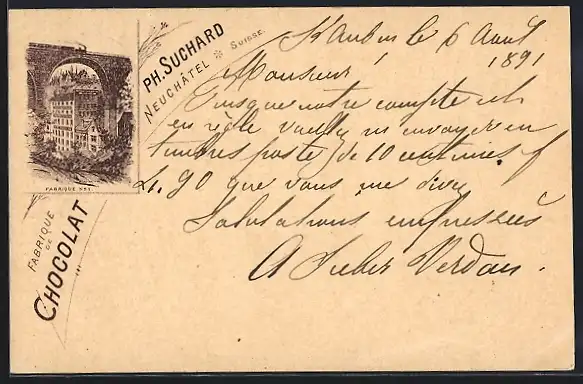 PH. SUCHARD
NEUCHÂTEL * SUISSE.
FABRIQUE No 1.
FABRIQUE
DE
CHOCOLAT
St Aubin le 6 Avril
1891
Monsieur
Puisque notre compte est
en règle veuillez m'envoyer en
timbres poste de 10 centimes f
4.90 que vous me devez
Salutations empressées
A